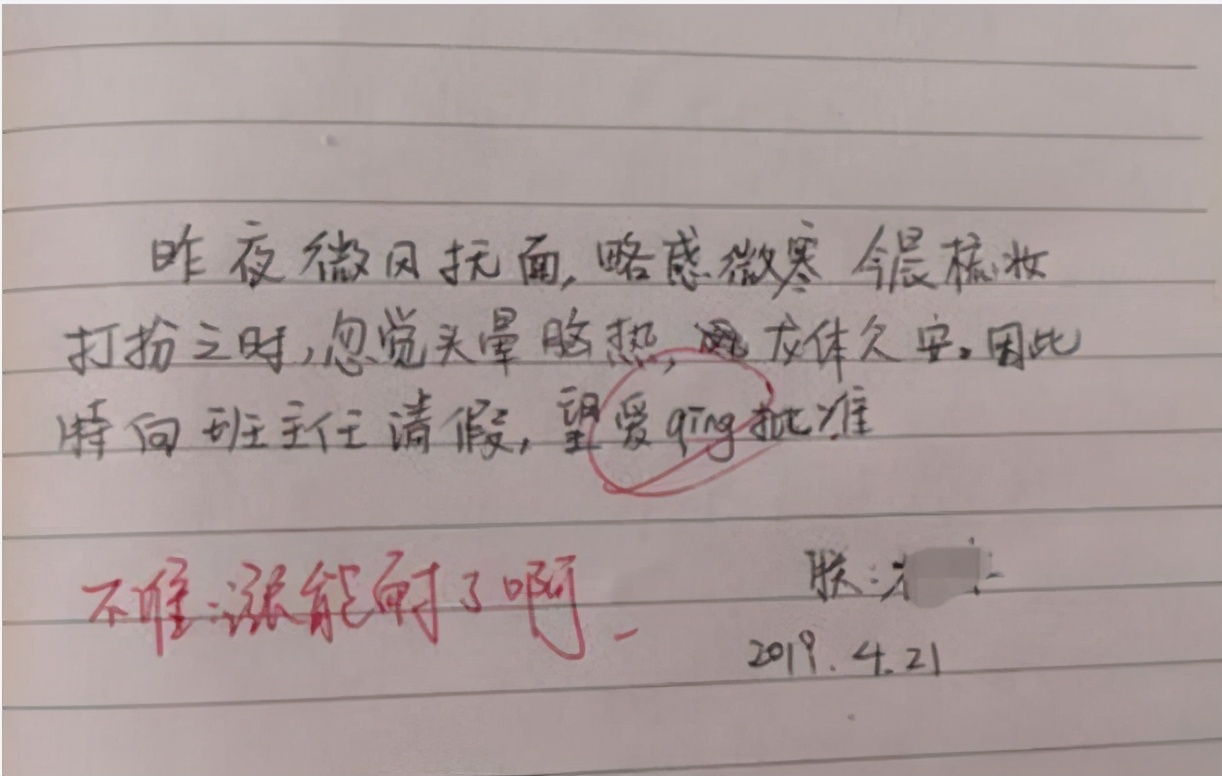 昨夜微风抚面,略感微寒 今晨梳妆
打扮之时,忽觉头晕脑热, 龙体欠安。因此
特向班主任请假,望爱qing批准
不准:涨能耐了啊
朕:
2019.4.21